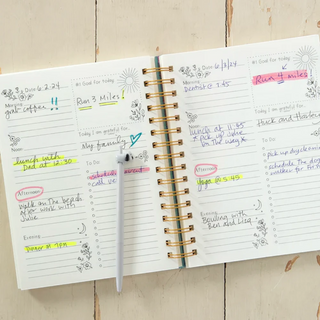 Date: 6.2.24
#1 Goal for Today
Morning
get coffee !!
Run 3 Miles!
Noon
lunch with
Dad at 12:30
Today I am grateful for
My family
To Do
call
Afternoon
walk on the beach
after work with
Julie
Evening
Dinner at 7pm
Date: 6/3/24
#1 Goal for Today
Morning
Dentist @ 7:45
Run 4 miles
Noon
lunch at 11:45
pick up Julie
on the way
Today I am grateful for
To Do
Afternoon
Yoga @ 5:45
Evening
Bowling with
Ben and Liza